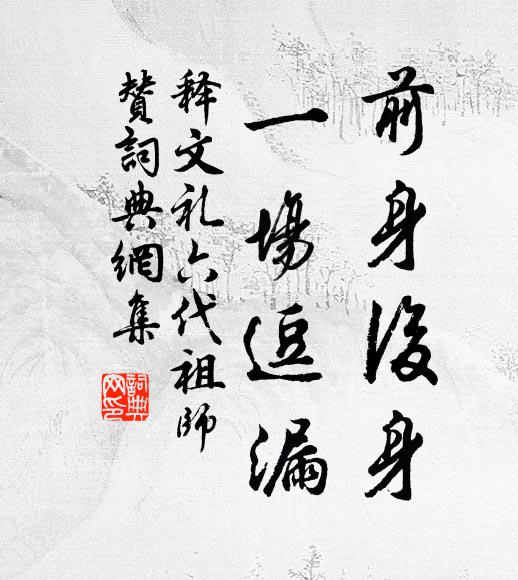 前身後身
一場逗漏
释文礼六代祖師
赞詞典網集
詞典网印